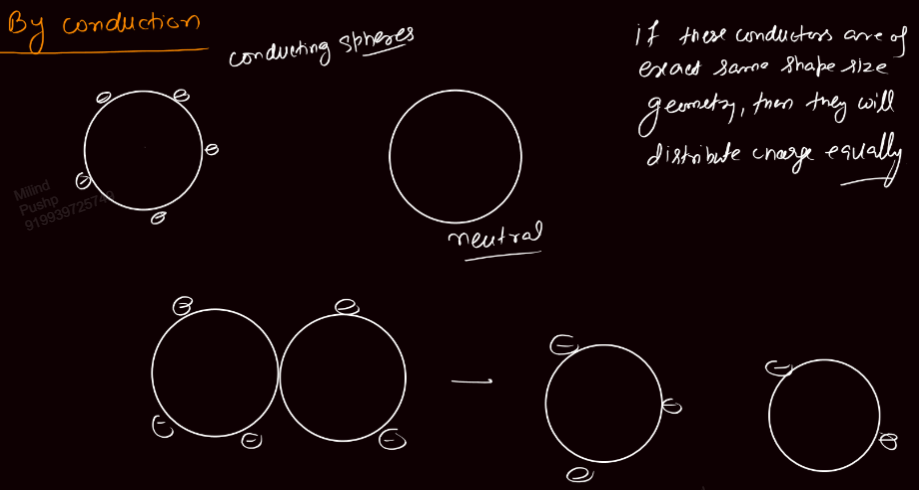 By conduction
conducting spheres
if these conductors are of
exact same shape size
geometry, then they will
distribute charge equally
neutral
Milind
Pushp